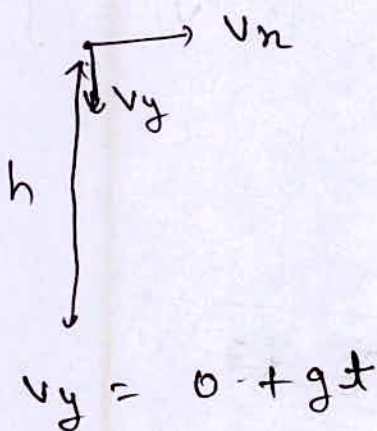 Vx
Vy
h
Vy = 0 + gt